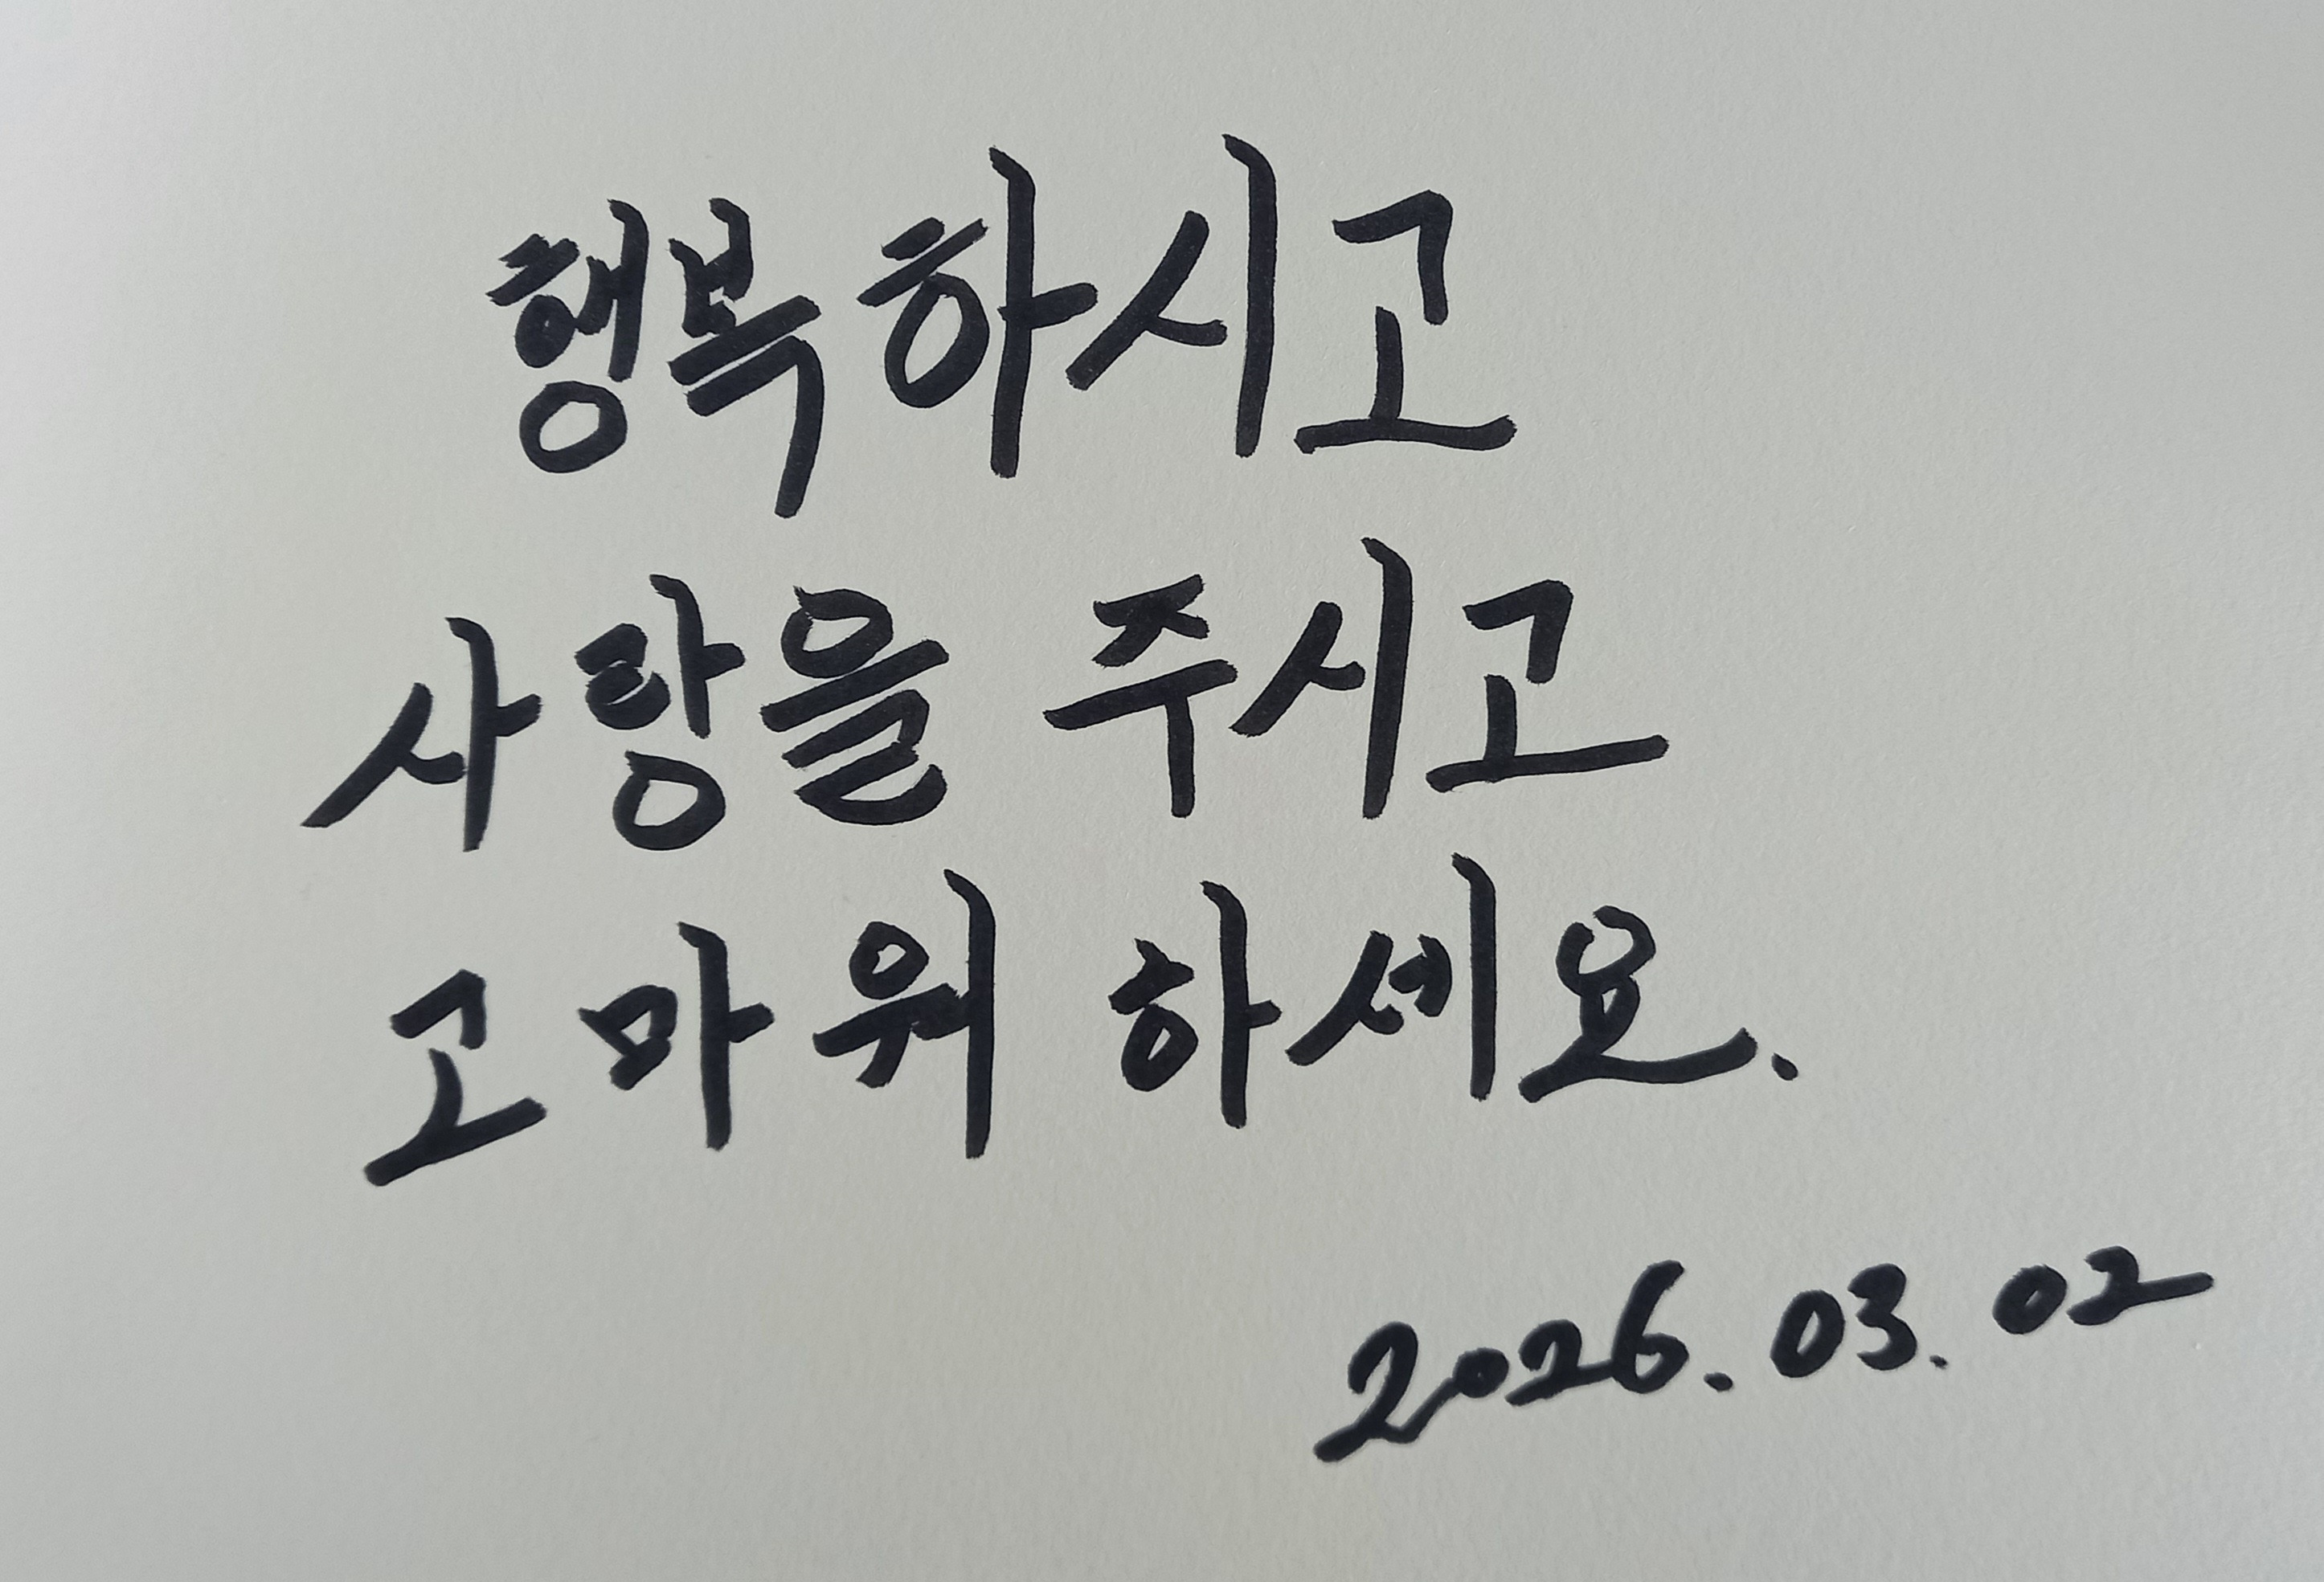 행복하시고
사랑을 주시고
고마워 하세요.
2026. 03. 02